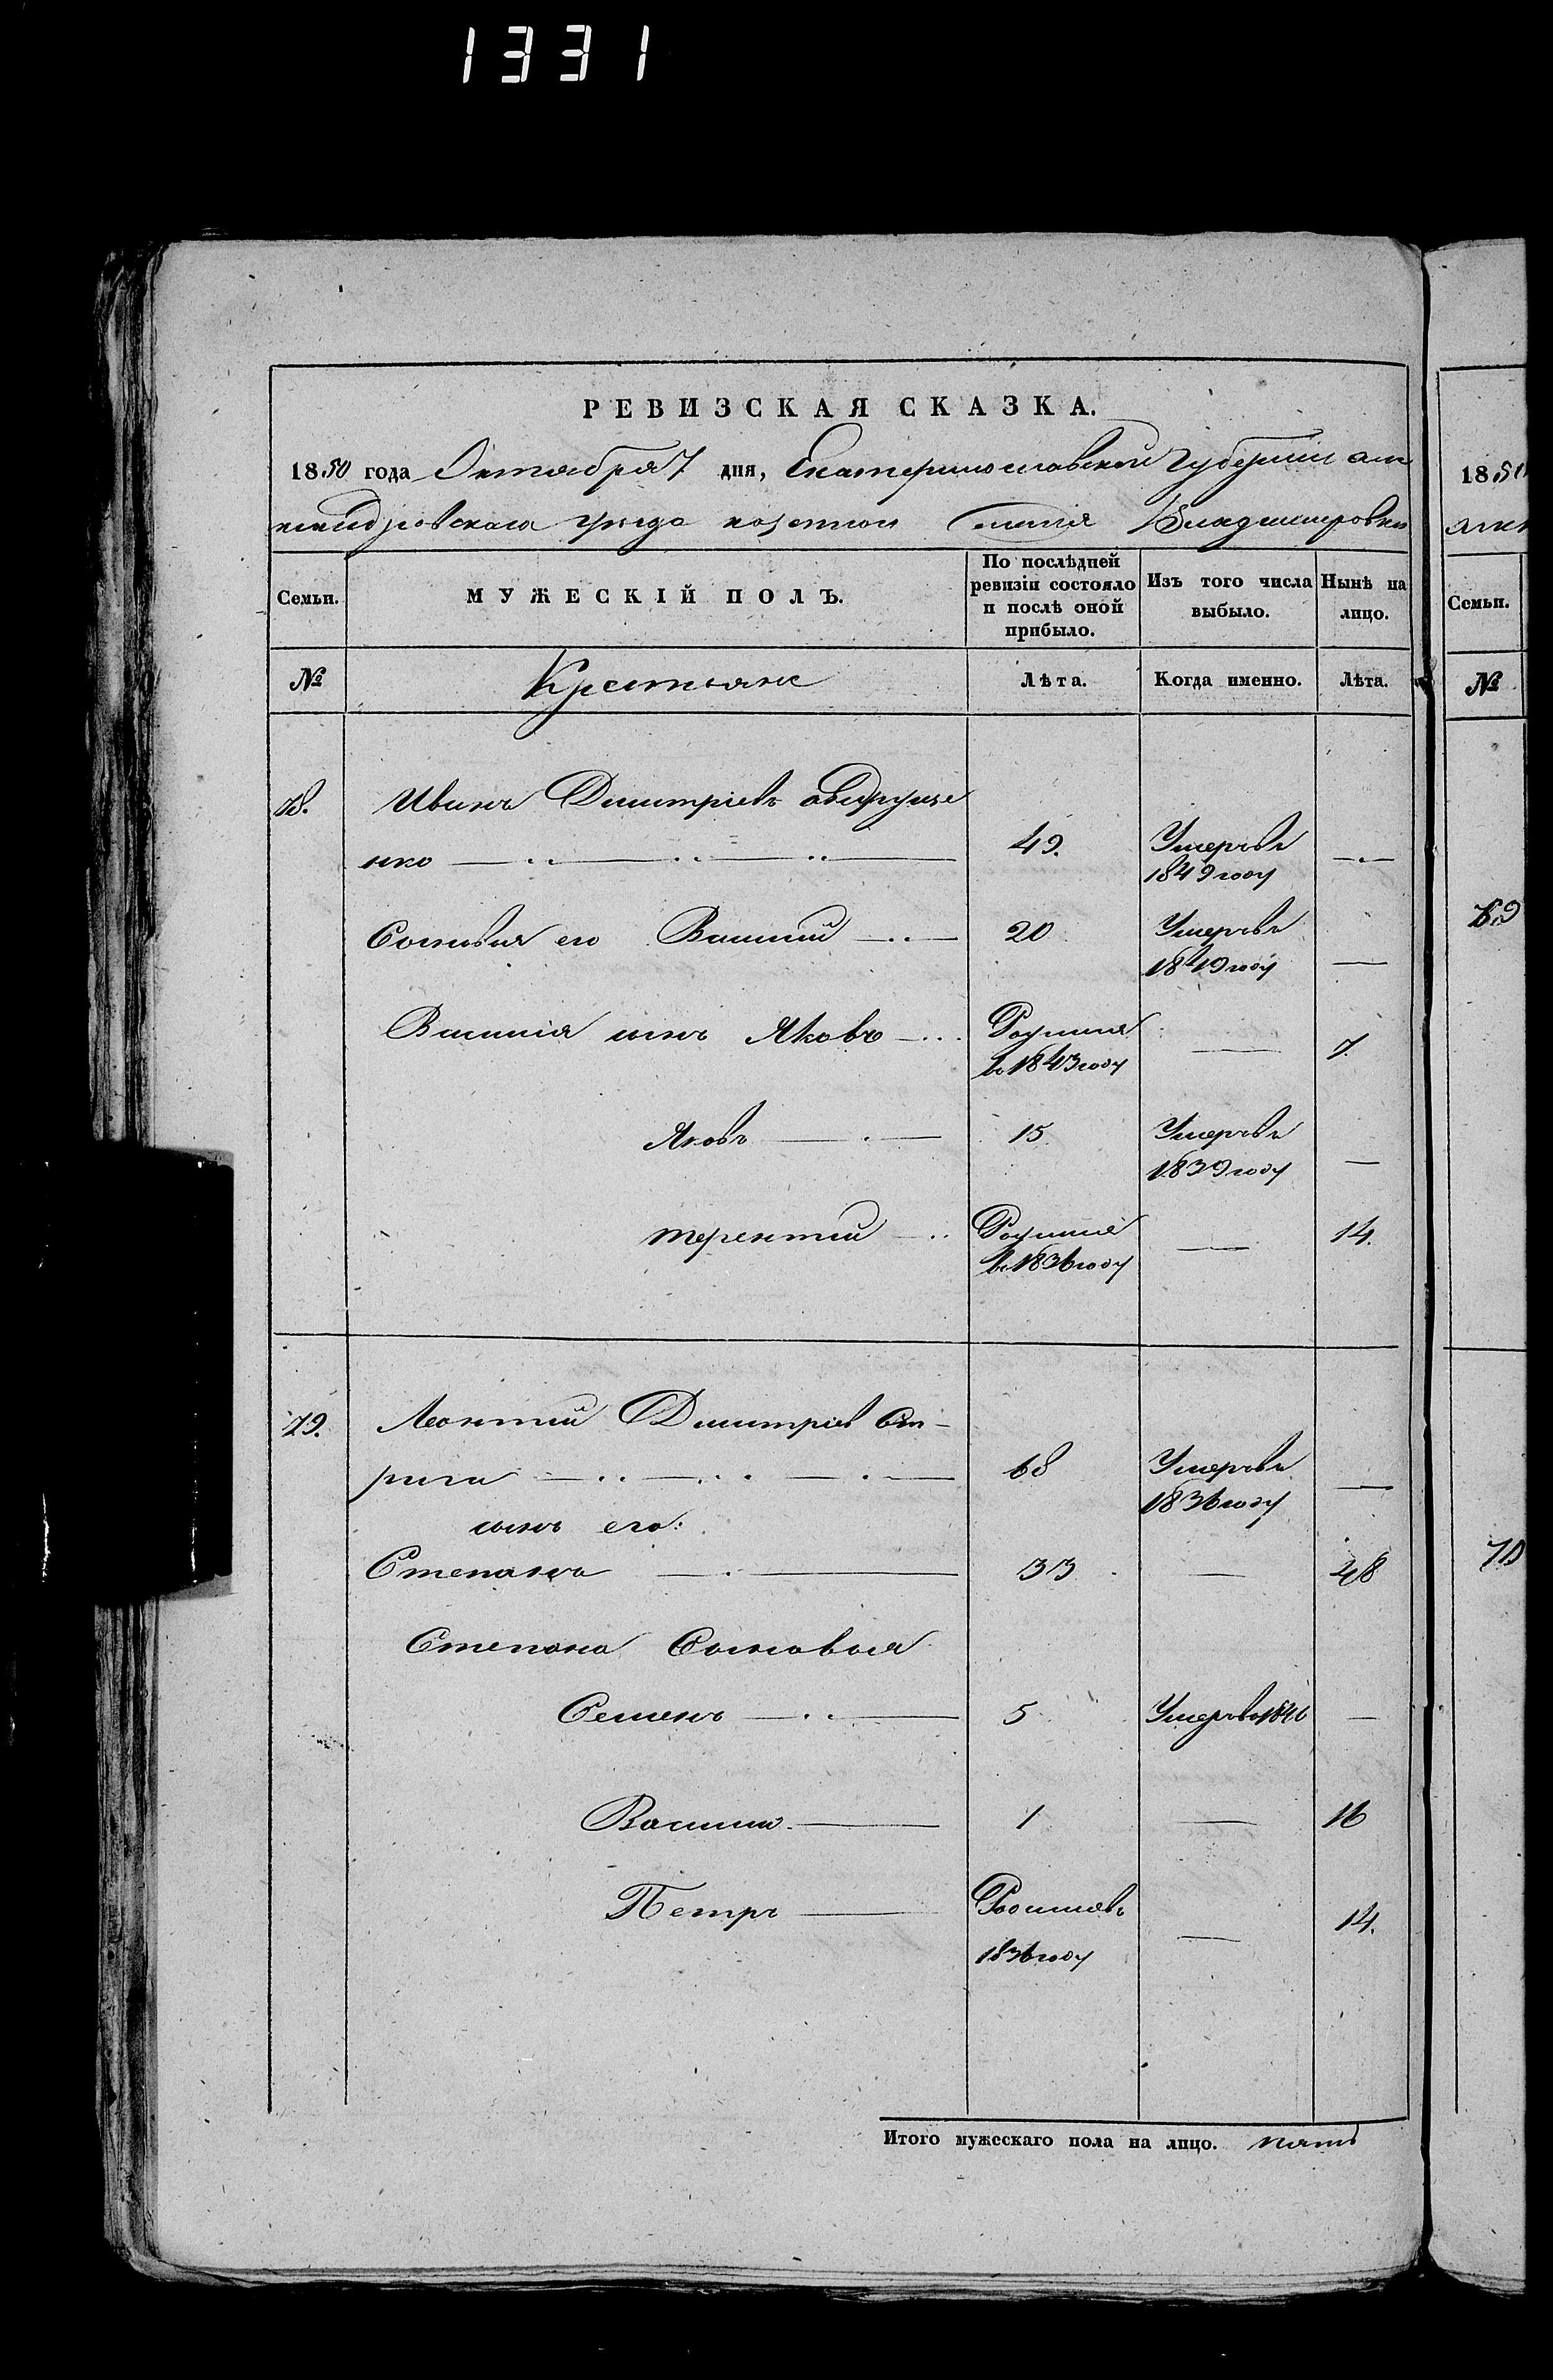 1331
РЕВИЗСКАЯ СКАЗКА.
1850 года Октября 7 дня, Екатеринославской Губернии але
ксандровскаго уезда казеннои Селения Владимировки
Семьи. МУЖЕСКІЙ ПОЛЪ. По послѣдней ревизіи состояло и послѣ оной прибыло. Изъ того числа выбыло. Нынѣ на лицо.
№ Крестьяне Лѣта. Когда именно. Лѣта.
78. Иванъ Дмитріевъ
нко 49. Умеръ въ —
1849 году
Сыновья его Василий 20 Умеръ въ
1849 году —
Василія сынъ Яковъ Родился — 7.
въ 1843 году
Яковъ 15 Умеръ въ
1839 году —
терентий Родился — 14.
въ 1836 году
79. Леонтий Дмитріев Ст-
рига 68 Умеръ въ —
1836 году
сынъ его:
Степанъ 33 — 48
Степана Сыновья
Семенъ 5 Умеръ в 1840 —
Василий 1 — 16
Петръ Родился въ — 14.
1836 году
Итого мужескаго пола на лицо. пять
1850
алек
Семьи.
№
69
70